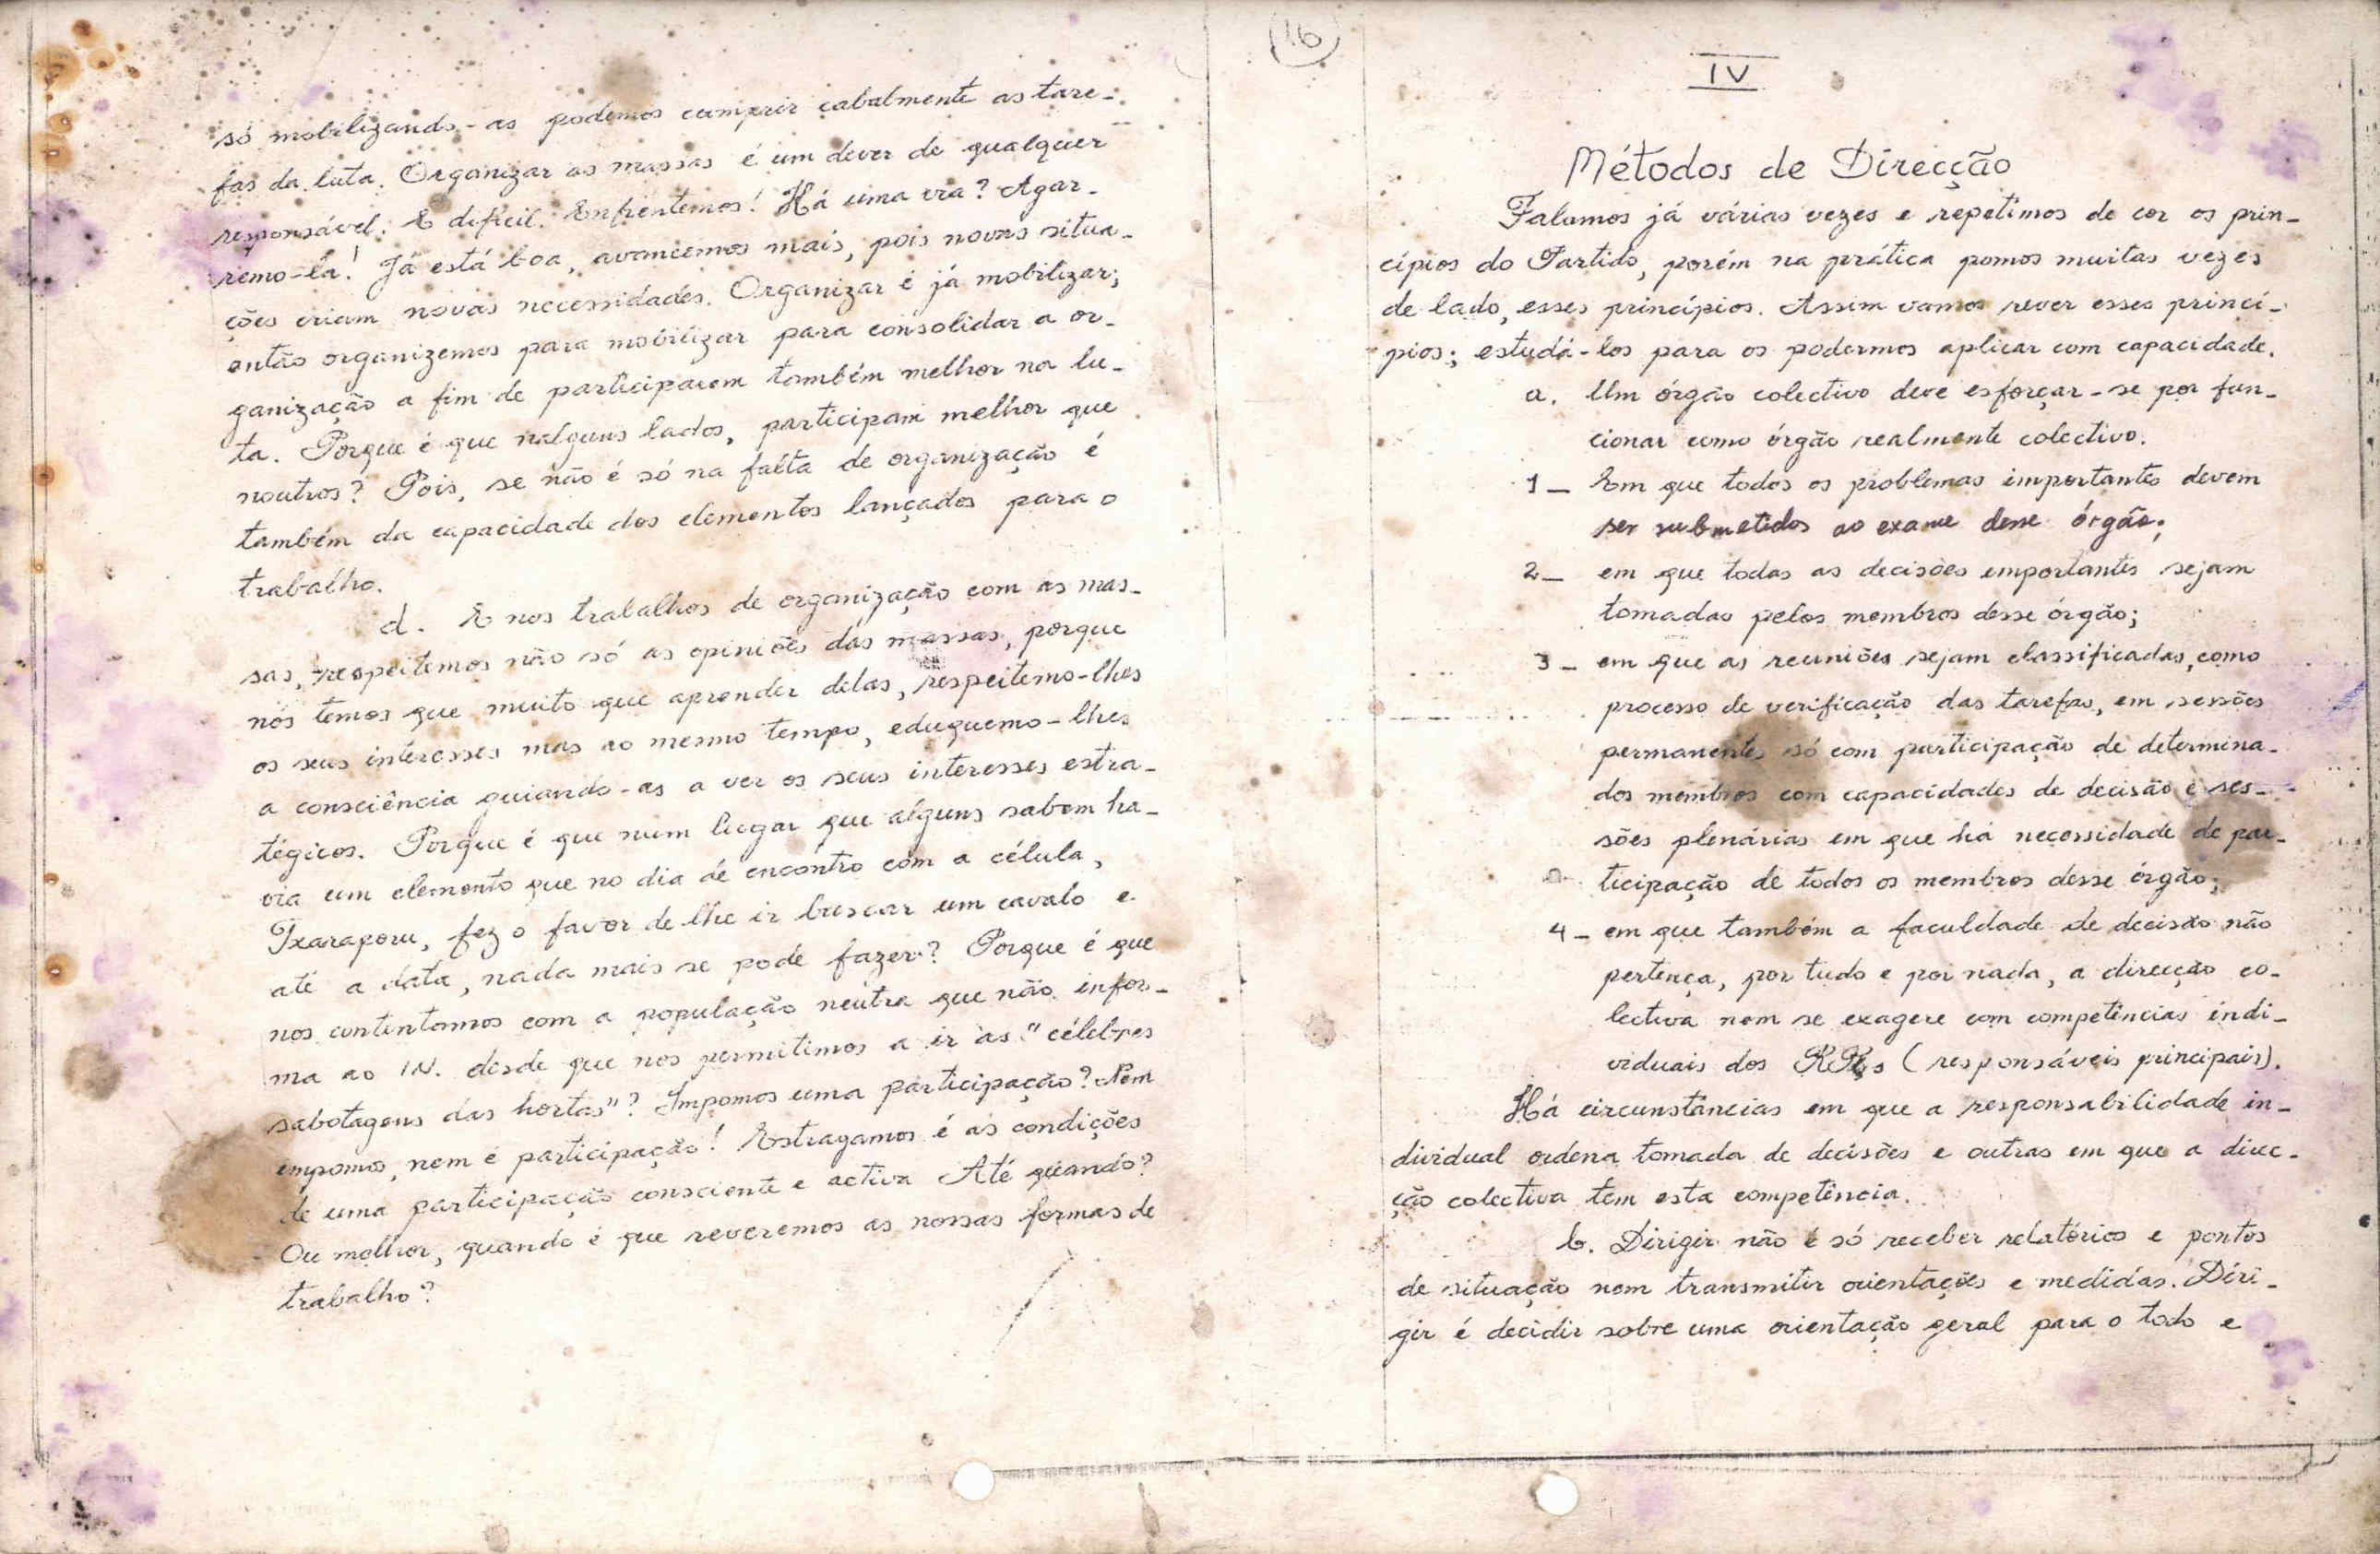 só mobilizando-as podemos cumprir cabalmente as tare-
fas da luta. Organizar as massas é um dever de qualquer
responsável. É difícil. Enfrentemos! Há uma via? Agar-
remo-la! Já está boa, avancemos mais, pois novas situa-
ções criam novas necessidades. Organizar é já mobilizar;
então organizemos para mobilizar para consolidar a or-
ganização a fim de participarem também melhor na lu-
ta. Porque é que nalguns lados, participam melhor que
noutros? Pois, se não é só na falta de organização é
também da capacidade dos elementos lançados para o
trabalho.
d. E nos trabalhos de organização com as mas-
sas, respeitemos não só as opiniões das massas, porque
nós temos que muito que aprender delas, respeitemo-lhes
os seus interesses mas ao mesmo tempo, eduquemo-lhes
a consciência guiando-as a ver os seus interesses estra-
tégicos. Porque é que num lugar que alguns sabem ha-
via um elemento que no dia de encontro com a célula,
Txaraporu, fez o favor de lhe ir buscar um cavalo e
até a data, nada mais se pode fazer? Porque é que
nos contentamos com a população neutra que não infor-
ma ao IN. desde que nos permitimos a ir às "célebres
sabotagens das hortas"? Impomos uma participação? Nem
impomos, nem é participação! Estragamos é as condições
de uma participação consciente e activa Até quando?
Ou melhor, quando é que reveremos as nossas formas de
trabalho?
16
IV
Métodos de Direcção
Falamos já várias vezes e repetimos de cor os prin-
cípios do Partido, porém na prática pomos muitas vezes
de lado, esses princípios. Assim vamos rever esses princí-
pios; estudá-los para os podermos aplicar com capacidade.
a. Um órgão colectivo deve esforçar-se por fun-
cionar como órgão realmente colectivo.
1 - Em que todos os problemas importantes devem
ser submetidos ao exame desse órgão;
2 - em que todas as decisões importantes sejam
tomadas pelos membros desse órgão;
3 - em que as reuniões sejam classificadas, como
processo de verificação das tarefas, em sessões
permanentes só com participação de determina-
dos membros com capacidades de decisão e ses-
sões plenárias em que há necessidade de par-
ticipação de todos os membros desse órgão;
4 - em que também a faculdade de decisão não
pertença, por tudo e por nada, a direcção co-
lectiva nem se exagere com competências indi-
viduais dos (responsáveis principais).
Há circunstâncias em que a responsabilidade in-
dividual ordena tomada de decisões e outras em que a direc-
ção colectiva tem esta competência.
b. Dirigir não é só receber relatórios e pontos
de situação nem transmitir orientações e medidas. Diri-
gir é decidir sobre uma orientação geral para o todo e